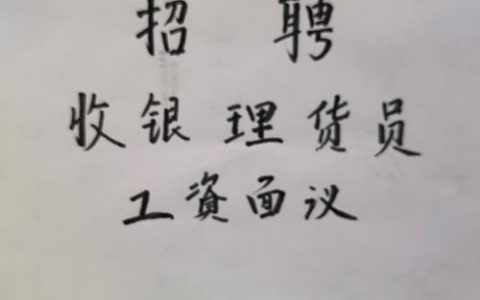 招聘
收银理货员
工资面议